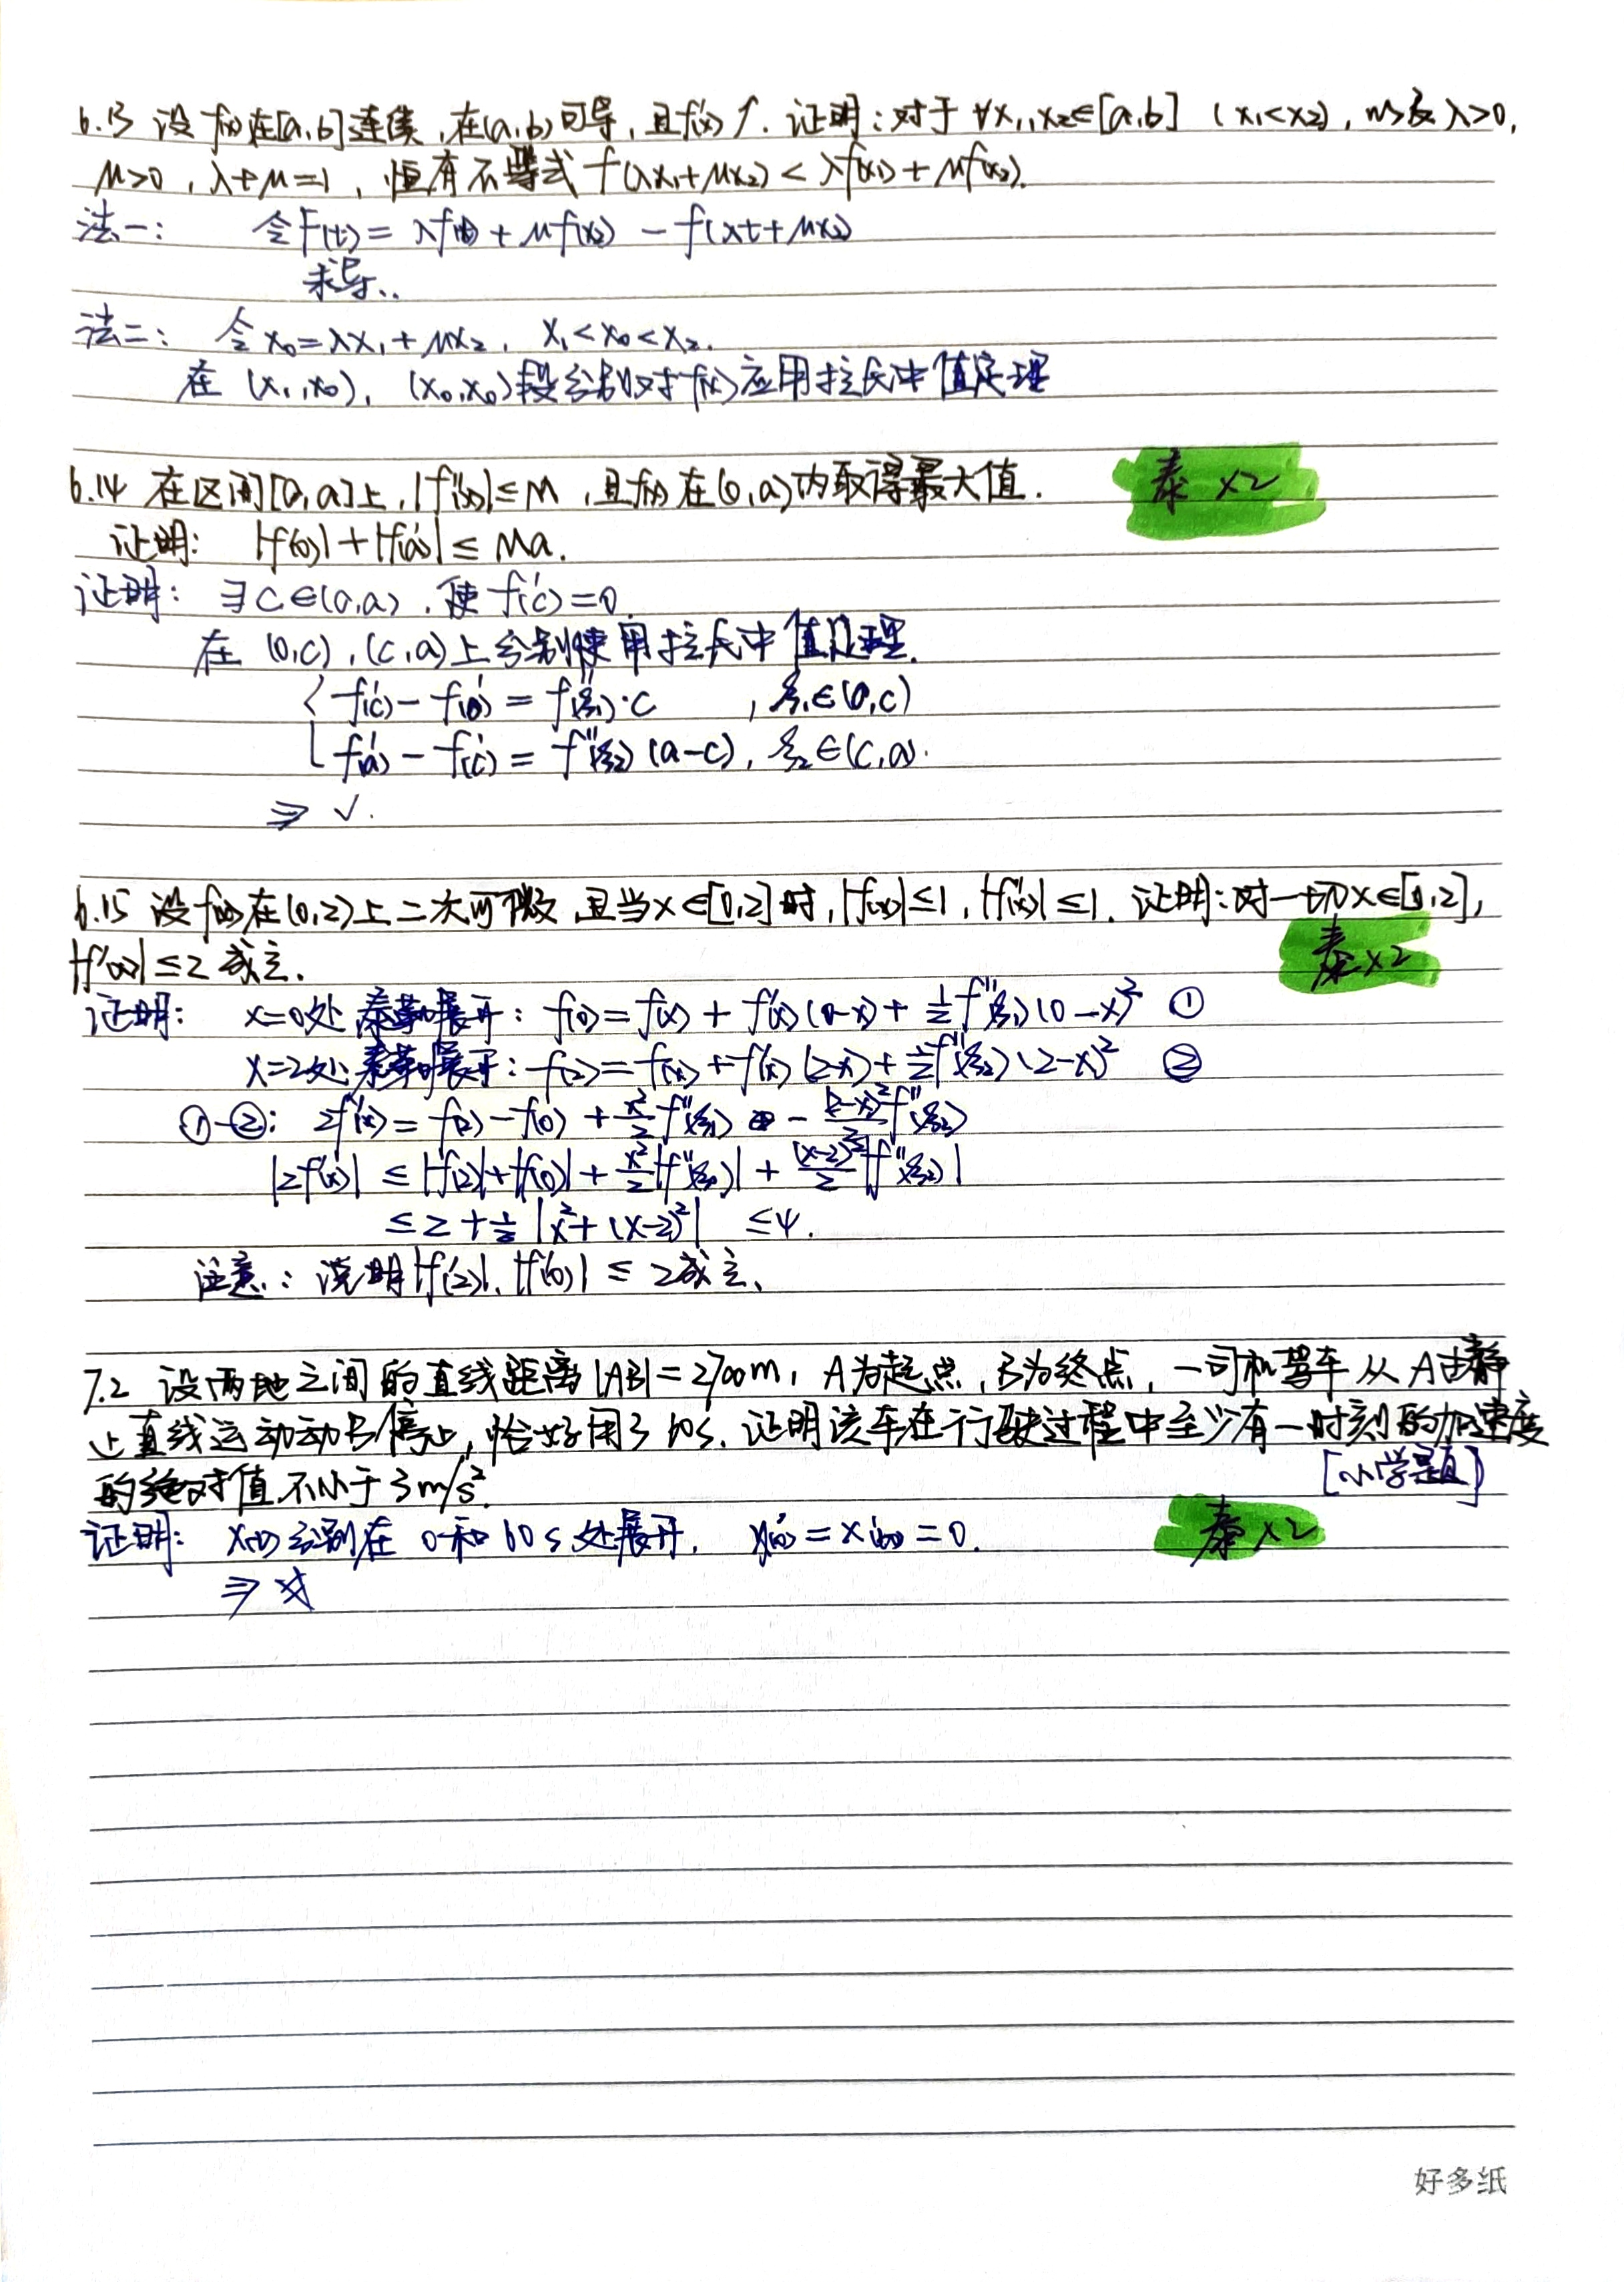 6.13 设f(x)在[a,b]连续,在(a,b)可导,且f'(x)↑. 证明:对于∀x₁,x₂∈[a,b] (x₁<x₂),以及λ>0,
μ>0,λ+μ=1,恒有不等式 f(λx₁+μx₂) < λf(x₁)+μf(x₂).
法一: 令F(t)= λf(t)+μf(x₂) - f(λt+μx₂)
求导..
法二: 令 x₀=λx₁+μx₂, x₁<x₀<x₂.
在 (x₁,x₀), (x₀,x₀)段分别对f(x)应用拉氏中值定理
6.14 在区间[0,a]上,|f''(x)|≤M,且f(x)在(0,a)内取得最大值.
泰 ×2
证明: |f'(0)|+|f'(a)| ≤ Ma.
证明: ∃C∈(0,a),使f'(c)=0.
在 (0,c),(c,a)上分别使用拉氏中值定理.
f'(c)-f'(0) = f''(ξ₁)·c ,ξ₁∈(0,c)
f'(a)-f'(c) = f''(ξ₂)(a-c), ξ₂∈(c,a).
⇒ √.
6.15 设f(x)在(0,2)上二次可微,且当x∈[0,2]时,|f(x)|≤1,|f''(x)|≤1. 证明:对一切x∈[0,2],
|f'(x)|≤2 成立.
泰×2
证明: x=0处泰勒展开: f(0)=f(x)+f'(x)(0-x)+½f''(ξ₁)(0-x)² ①
x=2处泰勒展开: f(2)=f(x)+f'(x)(2-x)+½f''(ξ₂)(2-x)² ②
①-②: 2f'(x)= f(2)-f(0)+x²/2 f''(ξ₁) - (2-x)²/2 f''(ξ₂)
|2f'(x)| ≤ |f(2)|+|f(0)|+x²/2|f''(ξ₁)| + (x-2)²/2|f''(ξ₂)|
≤2+½|x²+(x-2)²| ≤4.
注意: 说明|f'(2)|,|f'(0)| ≤ 2成立.
7.2 设两地之间的直线距离|AB|=2700m, A为起点,B为终点,一司机驾车从A由静
止直线运动动B停止,恰好用了60s. 证明该车在行驶过程中至少有一时刻的加速度
的绝对值不小于3m/s².
[小学题]
证明: x(t)分别在 0和60s处展开, x'(0)=x'(60)=0.
泰×2
⇒
好多纸